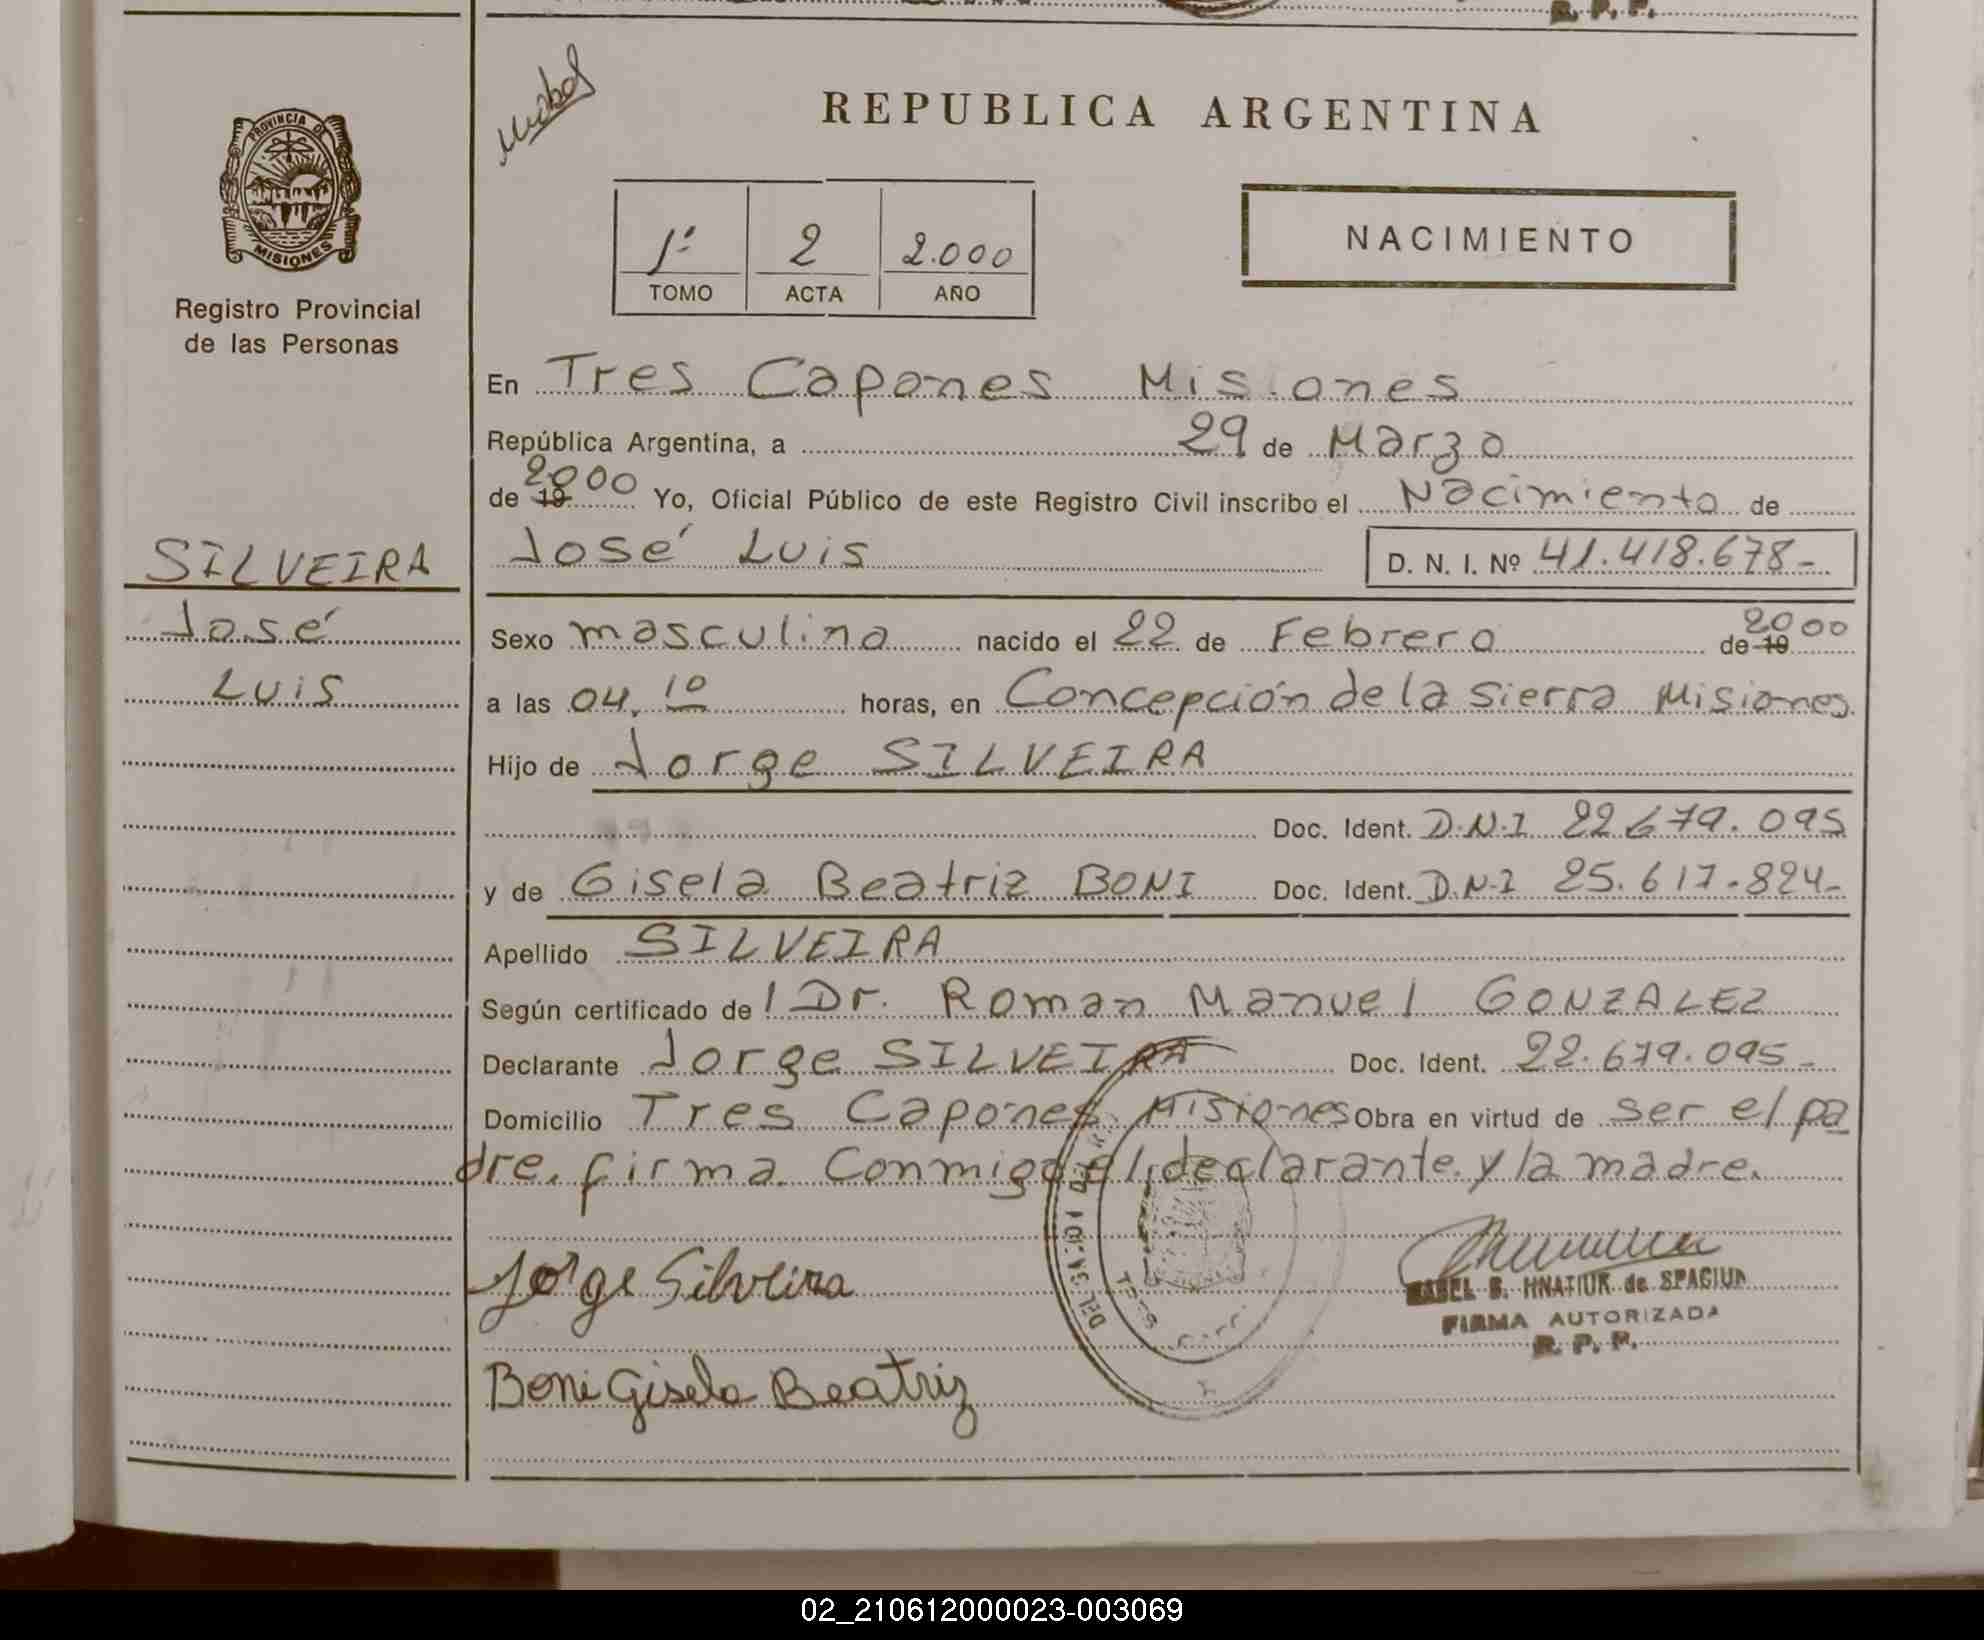 R. P. P.
REPUBLICA ARGENTINA
PROVINCIA DE
MISIONES
Registro Provincial
de las Personas
1º 2 2.000
TOMO ACTA AÑO
NACIMIENTO
En Tres Capones Misiones
República Argentina, a 29 de Marzo
de 19 2000 Yo, Oficial Público de este Registro Civil inscribo el Nacimiento de
José Luis D. N. I. Nº 41.418.678-
SILVEIRA
José
Luis
Sexo masculino nacido el 22 de Febrero de 19 2000
a las 04.10 horas, en Concepción de la Sierra Misiones
Hijo de Jorge SILVEIRA
Doc. Ident. D.N.I 22.679.095
y de Gisela Beatriz BONI Doc. Ident. D.N.I 25.617.824-
Apellido SILVEIRA
Según certificado de l Dr. Roman Manuel GONZALEZ
Declarante Jorge SILVEIRA Doc. Ident. 22.679.095-
Domicilio Tres Capones Misiones Obra en virtud de ser el pa
dre. firma Conmigo el declarante y la madre.
Jorge Silveira
HNATIUK de SPACIUK
FIRMA AUTORIZADA
R. P. P.
Boni Gisela Beatriz
02_210612000023-003069